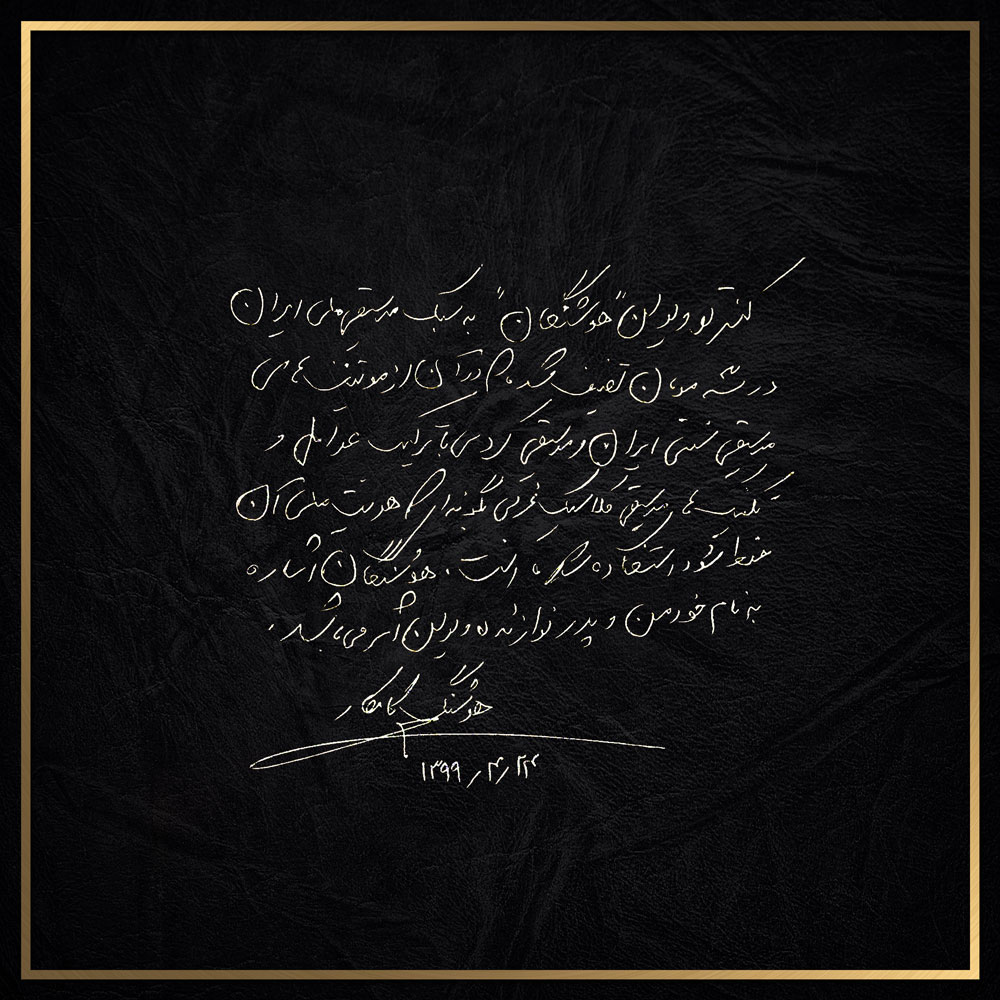 کنسرتو ویولن "هوشنگان" به سبک موسیقی‌های ایران
در سه مومان تصنیف شده که در آن از موتیف‌های
موسیقی سنتی ایران و موسیقی کردی با ترکیب عوامل و
تکنیک‌های موسیقی کلاسیک غربی بگونه‌ای که هویت ملی آن
حفظ شود استفاده شده است. هوشنگان اشاره
به نام خود من و پدر نوازنده ویولن اثر می‌باشد.
هوشنگ کامکار
۱۳۹۹/۴/۲۴